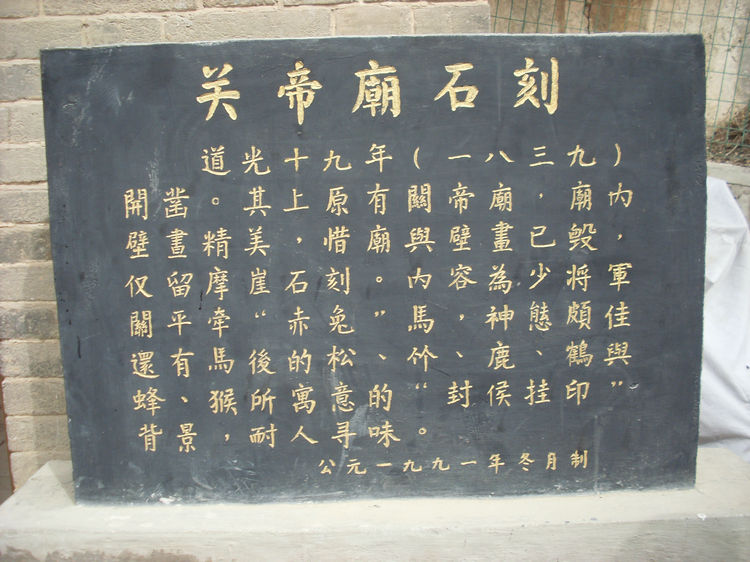 关帝廟石刻
道光十九年（一八三九）
開凿。其上原有關帝廟，廟內，
壁畫精美，惜廟與壁畫已毀
仅留摩崖石刻。內容為少將軍
關平牽“赤兔”馬，神態頗佳
還有馬後的松、竹、鹿、鶴與
蜂、猴所寓意的“封侯挂印”
背景，耐人尋味。
公元一九九一年冬月制